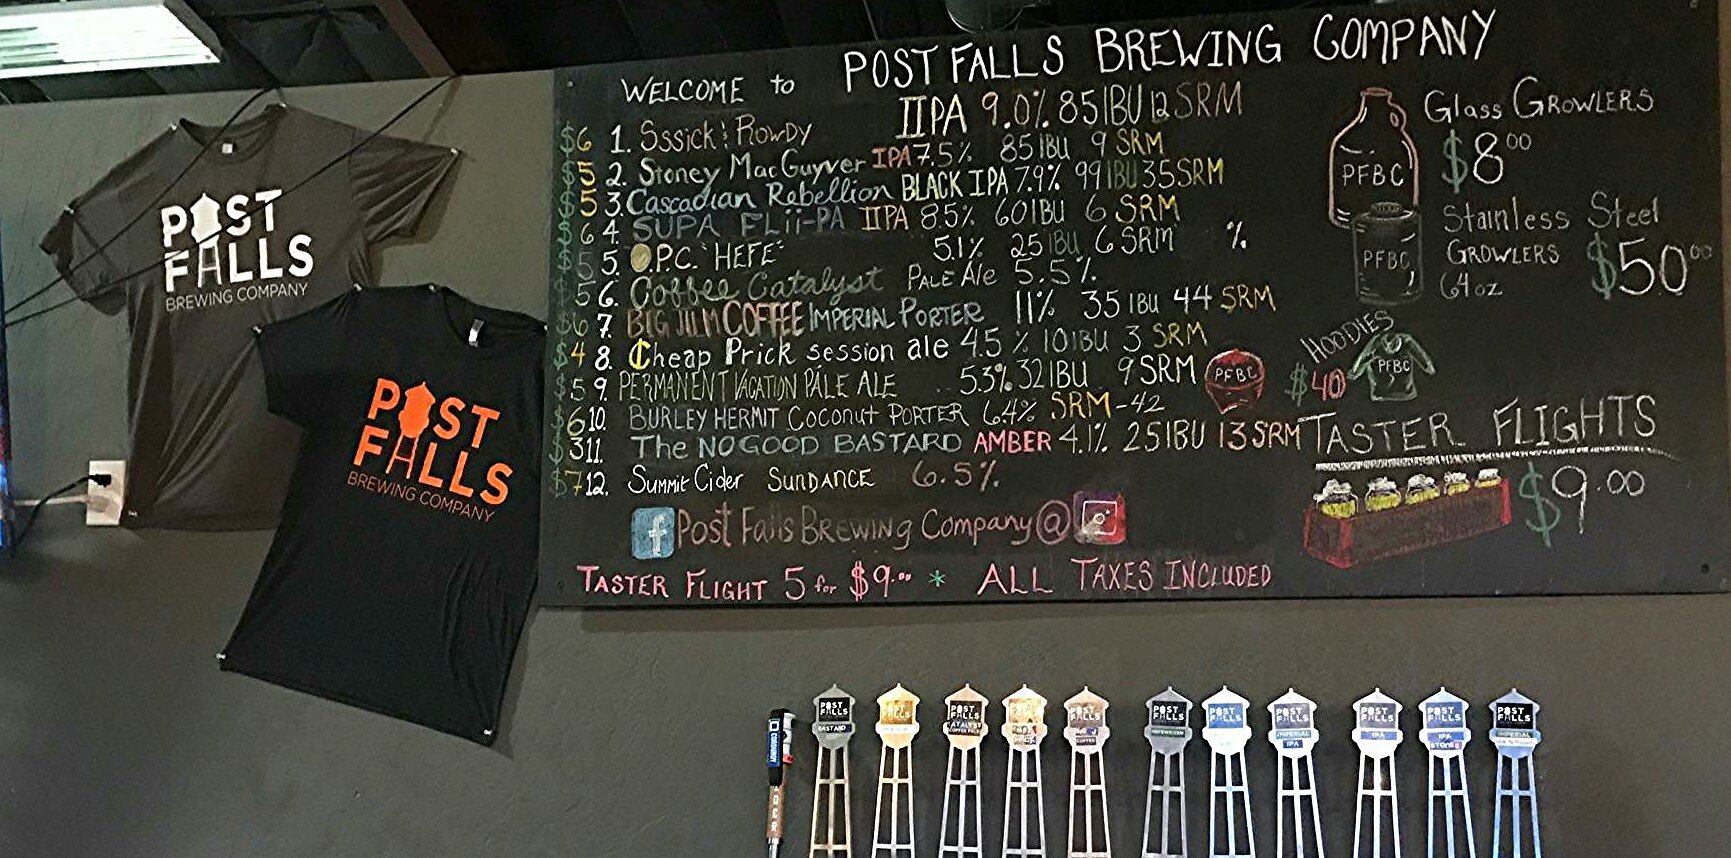 WELCOME to POST FALLS BREWING COMPANY
$6 1. Sssick & Rowdy IIPA 9.0% 85 IBU 12 SRM
$5 2. Stoney MacGuyver IPA 7.5% 85 IBU 9 SRM
$5 3. Cascadian Rebellion BLACK IPA 7.9% 99 IBU 35 SRM
$6 4. SUPA FLii-PA IIPA 8.5% 60 IBU 6 SRM
$5 5. O.P.C. "HEFE" 5.1% 25 IBU 6 SRM %
$5 6. Coffee Catalyst PALE Ale 5.5%
$6 7. BIG JIIM COFFEE IMPERIAL PORTER 11% 35 IBU 44 SRM
$4 8. Cheap Prick session ale 4.5% 10 IBU 3 SRM
$5 9. PERMANENT VACATION PALE ALE 5.3% 32 IBU 9 SRM
$6 10. BURLEY HERMIT Coconut PORTER 6.4% SRM-42
$3 11. The NO GOOD BASTARD AMBER 4.1% 25 IBU 13 SRM
$7 12. Summit Cider SUNDANCE 6.5%
f Post Falls Brewing Company @
TASTER FLIGHT 5 for $9.00 * ALL TAXES INCLUDED
Glass GROWLERS
$8.00
PFBC
Stainless Steel
GROWLERS
64 oz
$50.00
PFBC
HOODIES
$40
PFBC
PFBC
TASTER FLIGHTS
$9.00
POST
FALLS
BREWING COMPANY
POST
FALLS
BREWING COMPANY
POST
FALLS
BASTARD
POST
FALLS
POST
FALLS
CATALYST
POST
FALLS
POST
FALLS
COFFEE
POST
FALLS
HEFEWEIZEN
POST
FALLS
POST
FALLS
IMPERIAL
IPA
POST
FALLS
IPA
POST
FALLS
IPA
POST
FALLS
IMPERIAL